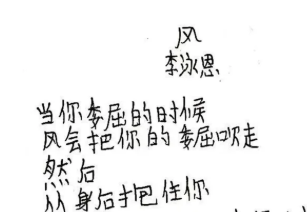 风
李泳恩
当你委屈的时候
风会把你的委屈吹走
然后
从身后抱住你